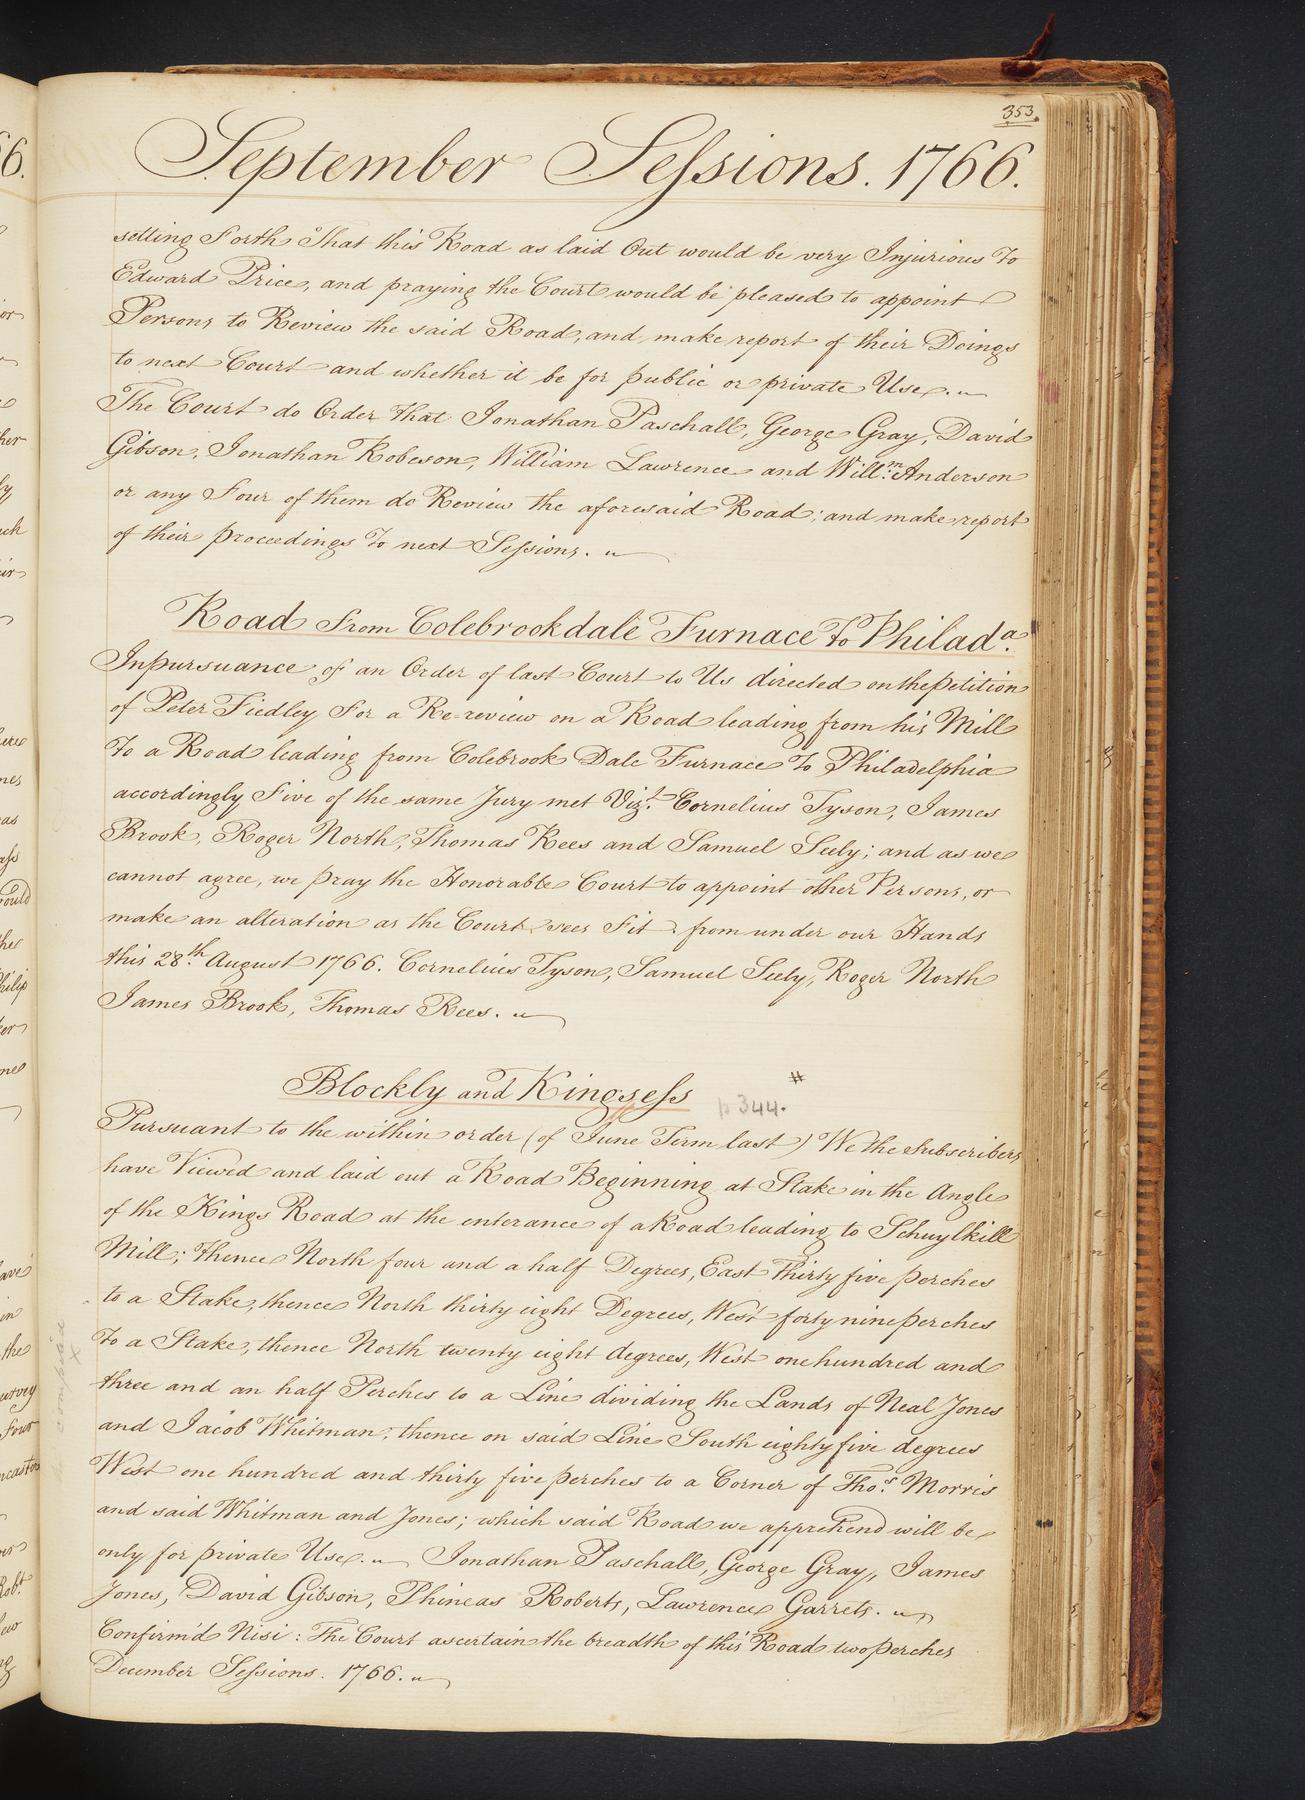 353.
September Sessions. 1766.
setting Forth That this Road as laid Out would be very Injurious To
Edward Price, and praying the Court would be pleased to appoint
Persons to Review the said Road, and make report of their Doings
to next Court and whether it be for public or private Use.
The Court do Order That Jonathan Paschall, George Gray, David
Gibson, Jonathan Robeson, William Lawrence and Will.m Anderson
or any Four of them do Review the aforesaid Road; and make report
of their proceedings To next Sessions.
Road From Colebrookdale Furnace To Philad.a
Inpursuance of an Order of last Court to Us directed on the petition
of Peter Fiedley For a Re-review on a Road leading from his Mill
To a Road leading from Colebrook Dale Furnace To Philadelphia
accordingly Five of the same Jury met Viz.t Cornelius Tyson, James
Brook, Roger North, Thomas Rees and Samuel Seely; and as we
cannot agree, we pray the Honorable Court to appoint other Persons, or
make an alteration as the Court sees Fit from under our Hands
this 28.th August 1766. Cornelius Tyson, Samuel Seely, Roger North
James Brook, Thomas Rees.
Blockly and Kingsess #
p 344.
Pursuant to the within order (of June Term last) We the Subscribers
have Viewed and laid out a Road Beginning at Stake in the Angle
of the Kings Road at the enterance of a Road leading to Schuylkill
Mill; thence North four and a half Degrees, East Thirty five perches
to a Stake, thence North thirty eight Degrees, West forty nine perches
To a Stake, thence North twenty eight degrees, West one hundred and
three and an half Perches to a Line dividing the Lands of Neal Jones
and Jacob Whitman, thence on said Line South eighty five degrees
West one hundred and thirty five perches to a Corner of Tho.s Morris
and said Whitman and Jones; which said Road we apprehend will be
only for private Use. Jonathan Paschall, George Gray, James
Jones, David Gibson, Phineas Roberts, Lawrence Garrets.
Confirm'd Nisi: The Court ascertain the breadth of this Road two perches
December Sessions. 1766.